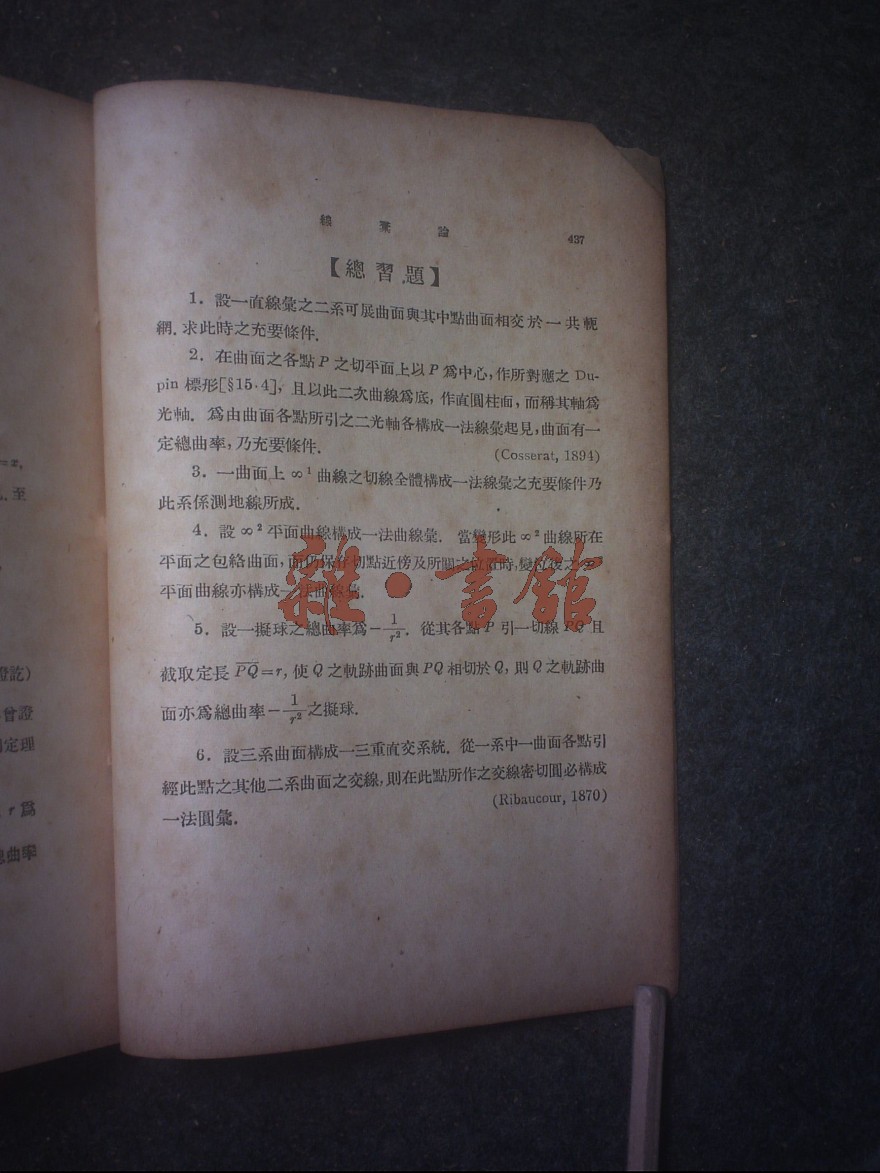 線彙論 437
【總習題】
1. 設一直線彙之二系可展曲面與其中點曲面相交於一共軛
網. 求此時之充要條件.
2. 在曲面之各點 P 之切平面上以 P 爲中心, 作所對應之 Du-
pin 標形[§15·4], 且以此二次曲線爲底, 作直圓柱面, 而稱其軸爲
光軸. 爲由曲面各點所引之二光軸各構成一法線彙起見, 曲面有一
定總曲率, 乃充要條件. (Cosserat, 1894)
3. 一曲面上 ∞¹ 曲線之切線全體構成一法線彙之充要條件乃
此系係測地線所成.
4. 設 ∞² 平面曲線構成一法曲線彙. 當變形此 ∞² 曲線所在
平面之包絡曲面, 而仍保存切點近傍及所關之位置時, 變位後之
平面曲線亦構成一法曲線彙.
5. 設一擬球之總曲率爲 −1/r². 從其各點 P 引一切線 PQ 且
截取定長 P̅Q̅=r, 使 Q 之軌跡曲面與 PQ 相切於 Q, 則 Q 之軌跡曲
面亦爲總曲率 −1/r² 之擬球.
6. 設三系曲面構成一三重直交系統. 從一系中一曲面各點引
經此點之其他二系曲面之交線, 則在此點所作之交線密切圓必構成
一法圓彙. (Ribaucour, 1870)
=x,
至
證訖)
曾證
定理
r 爲
曲率
雜·書館